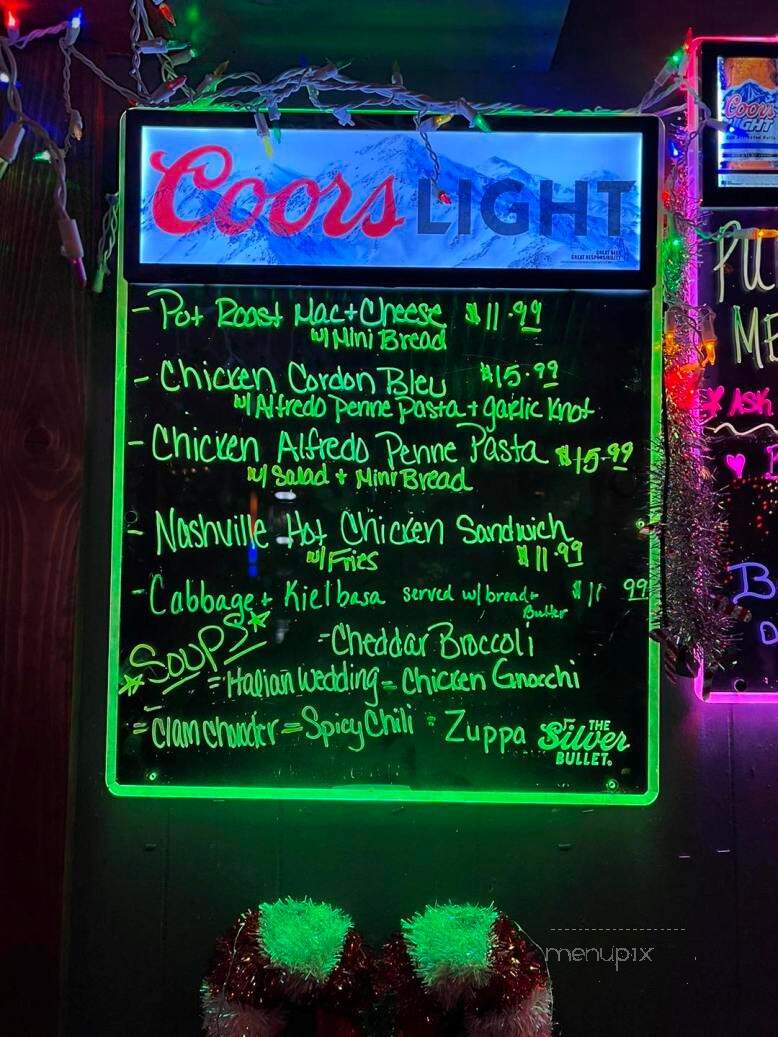 Coors LIGHT
GREAT BEER
GREAT RESPONSIBILITY
- Pot Roast Mac + Cheese $11.99
w/ Mini Bread
- Chicken Cordon Bleu $15.99
w/ Alfredo Penne Pasta + garlic Knot
- Chicken Alfredo Penne Pasta $15.99
w/ Salad + Mini Bread
- Nashville Hot Chicken Sandwich
w/ Fries $11.99
- Cabbage + Kielbasa served w/ bread + Butter $11 99
SOUPS
- Cheddar Broccoli
= Italian Wedding = Chicken Gnocchi
= Clam Chowder = Spicy Chili - Zuppa
THE
Silver
BULLET.
Coors
LIGHT
PU
ME
Ask
B
menupix